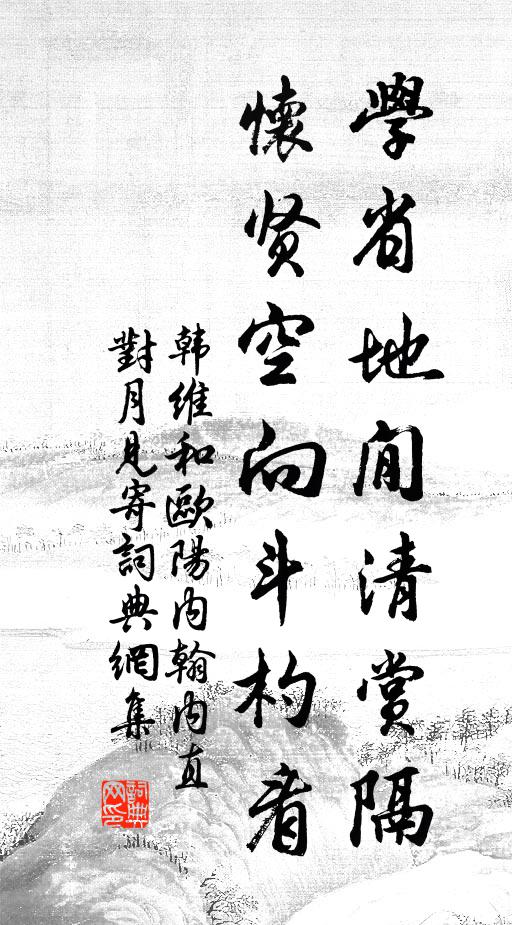 學省地閒清賞隔
懷贤空向斗杓看
韩維和歐陽内翰内直
對月見寄詞典網集
詞典网印